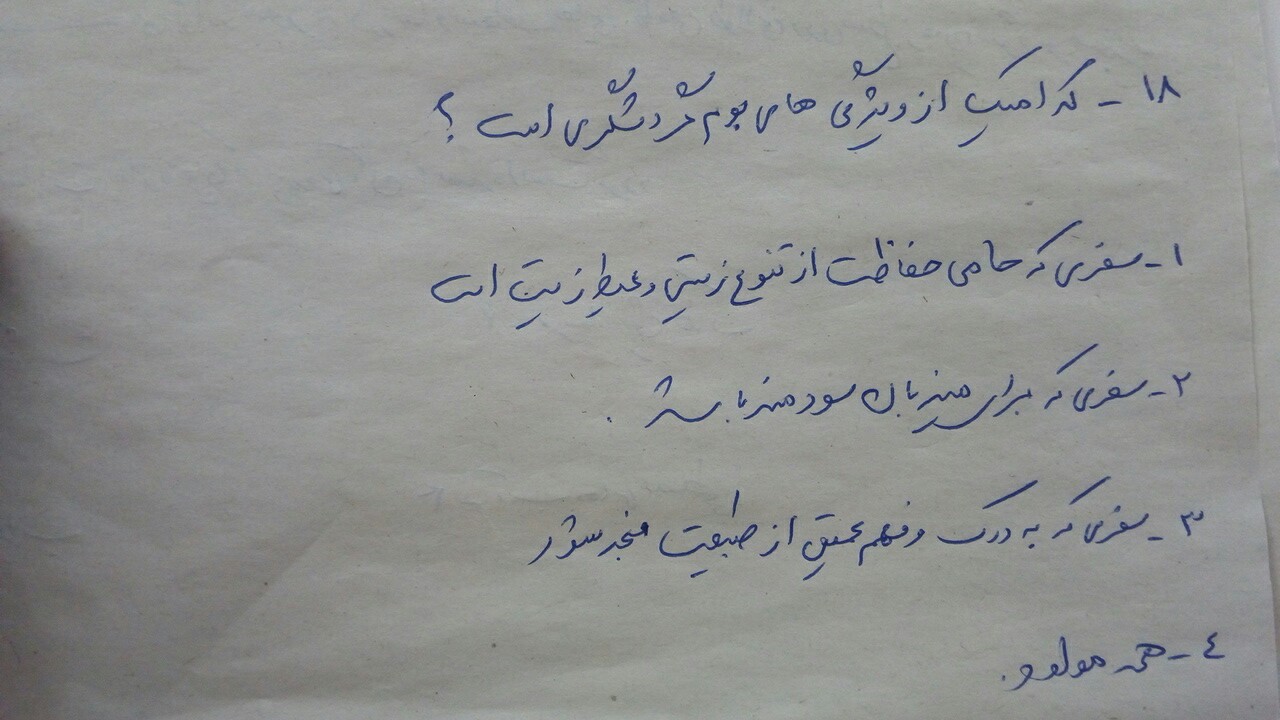 ۱۸ - کدامیک از ویژگی های بوم گردشگری است ؟
۱ - سفری که حامی حفاظت از تنوع زیستی و محیط زیست است
۲ - سفری که برای میزبان سودمند باشد .
۳ - سفری که به درک و فهم عمیق از طبیعت منجر شود
٤ - همه موارد .